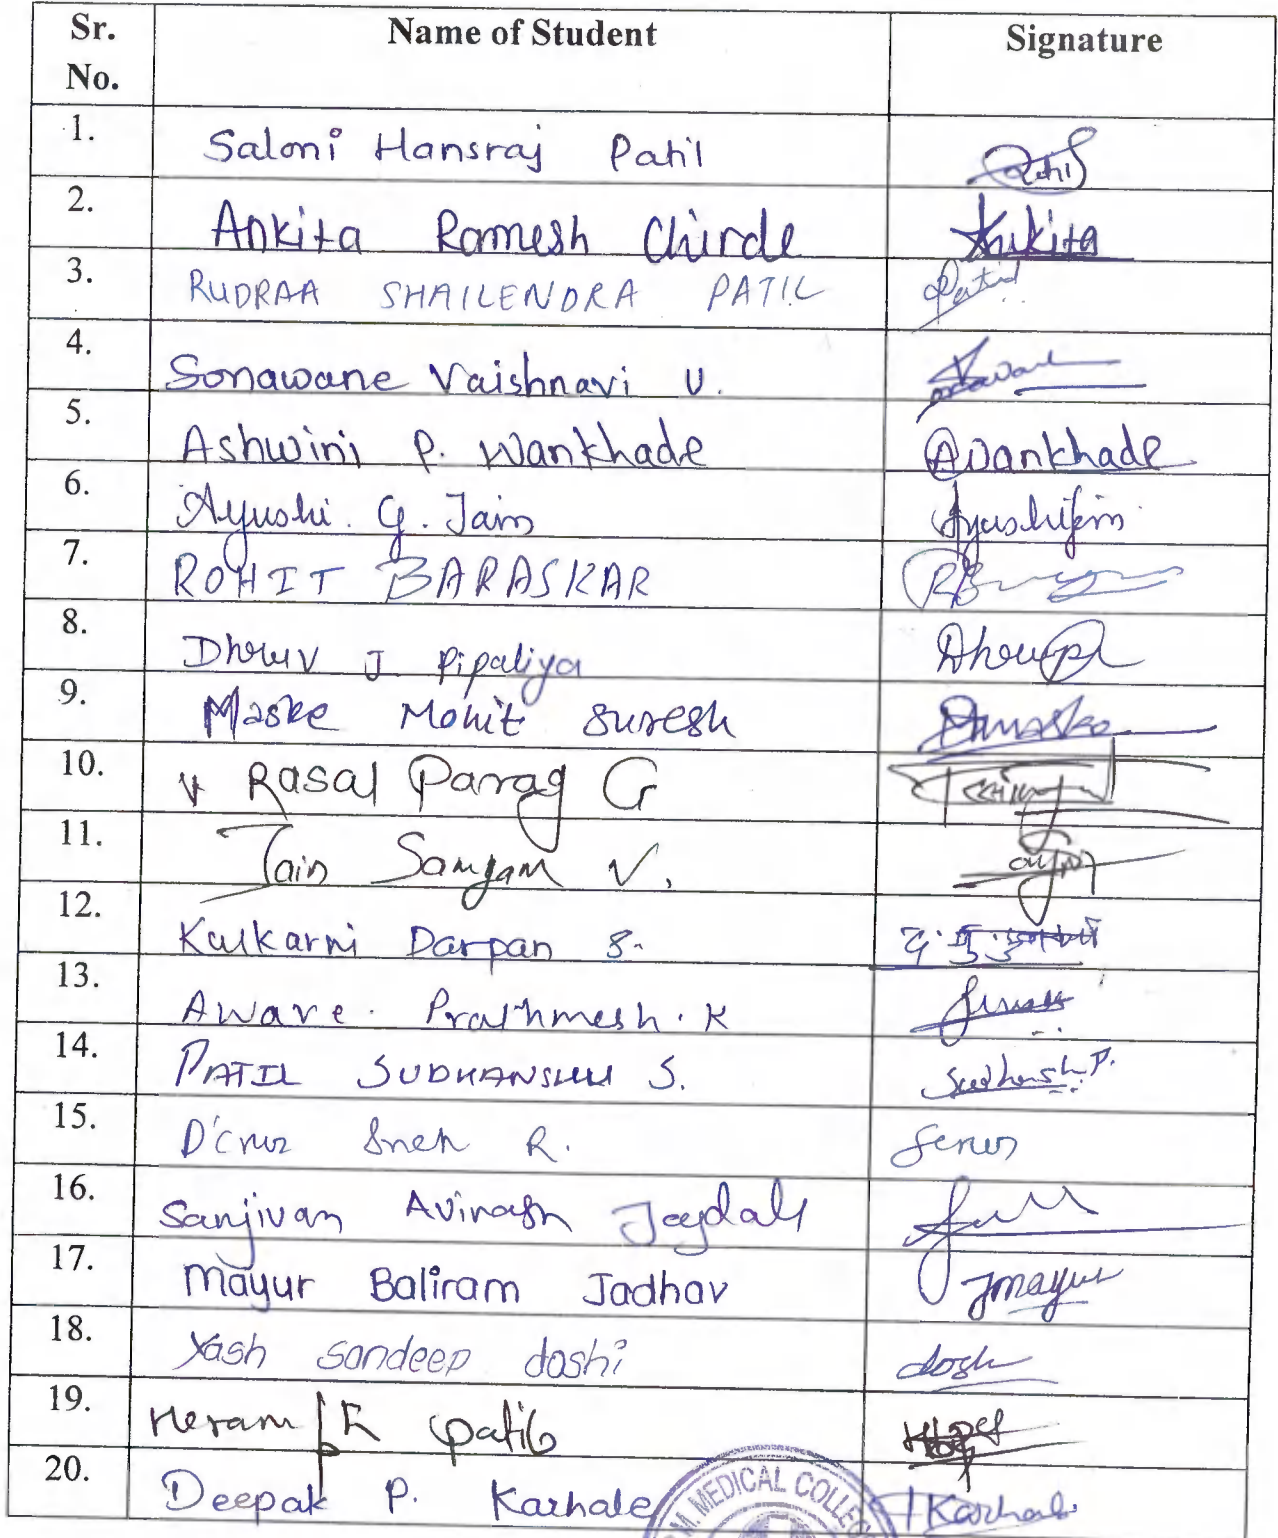 Sr. No. Name of Student Signature
1. Saloni Hansraj Patil Patil
2. Ankita Ramesh Chirde Ankita
3. RUDRAA SHAILENDRA PATIL Patil
4. Sonawane Vaishnavi U.
5. Ashwini P. Wankhade AWankhade
6. Ayushi. G. Jain Ayushi Jain
7. ROHIT BARASKAR
8. Dhruv J. Pipaliya
9. Maske Mohit Suresh
10. Rasal Parag G
11. Jain Samyam V.
12. Kulkarni Darpan S.
13. Aware. Prathmesh. K
14. PATIL SUDHANSHU S. Sudhansh P.
15. D'cruz Sneh R.
16. Sanjivan Avinash Jagdale
17. Mayur Baliram Jadhav JMayur
18. Yash Sandeep doshi doshi
19. Heramb R Patil
20. Deepak P. Karhale Karhale
MEDICAL COLLEGE